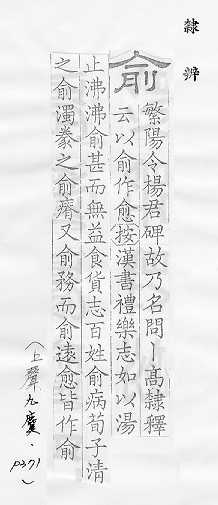 隸辨
俞
繁陽令楊君碑故乃名問丨髙隸釋
云以俞作愈按漢書禮樂志如以湯
止沸沸俞甚而無益食貨志百姓俞病荀子清
之俞濁豢之俞瘠又俞務而俞遠愈皆作俞
(上聲九麌·P371)